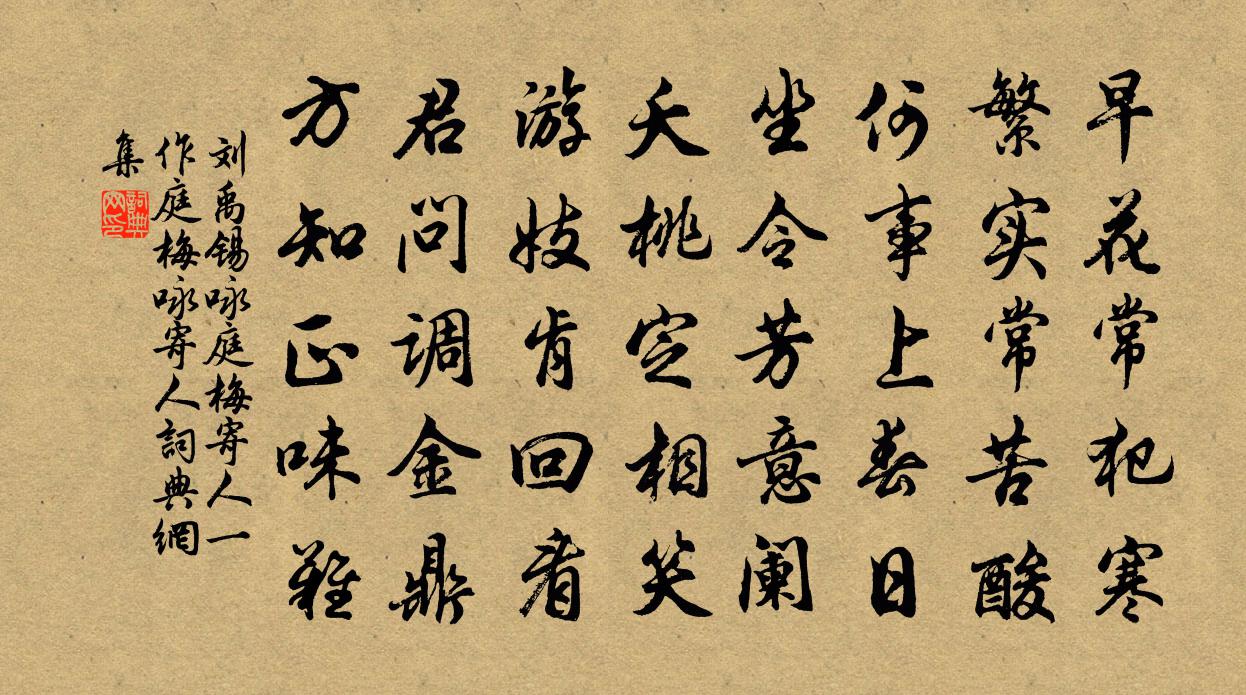 早花常犯寒
繁实常苦酸
何事上春日
坐令芳意阑
夭桃定相笑
游妓肯回看
君问调金鼎
方知正味难
刘禹锡咏庭梅寄人一
作庭梅咏寄人詞典網
集
詞典
网印